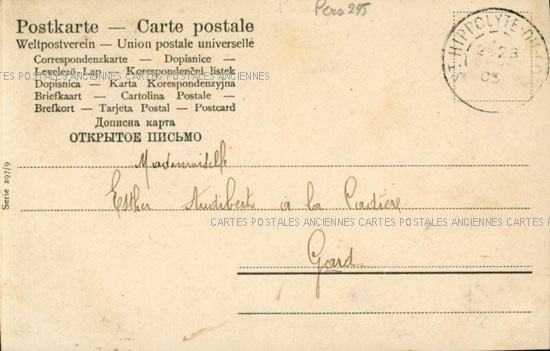 Pers 245
Postkarte — Carte postale
Weltpostverein — Union postale universelle
Correspondenzkarte — Dopisnice —
Levelező-Lap — Korespondenční listek
Dopisnica — Karta Korespondenzyjna
Briefkaart — Cartolina Postale —
Brefkort — Tarjeta Postal — Postcard
Дописна карта
ОТКРЫТОЕ ПИСЬМО
ST HIPPOLYTE
03
CARTES POSTALES ANCIENNES CARTES POSTALES ANCIENNES CARTES POSTALES ANCIENNES CARTES POSTALES
Mademoiselle
Esther Audibert à la Cadière
CARTES POSTALES ANCIENNES CARTES POSTALES ANCIENNES CARTES POSTALES
Gard
Serie 297/9